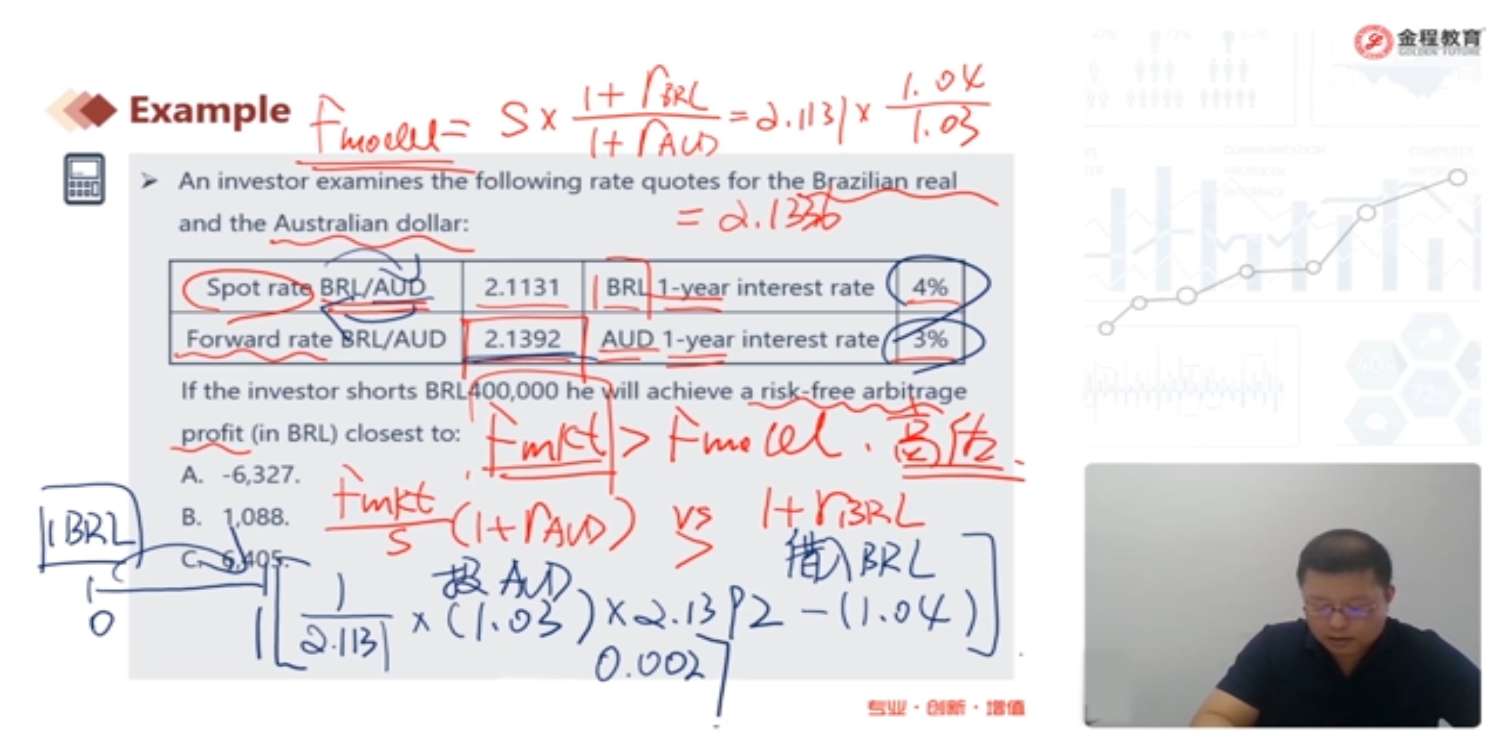 金程教育
GOLDEN FUTURE
Example
Fmodel = S × (1 + rBRL)/(1 + rAUD) = 2.1131 × 1.04/1.03
= 2.1336
➢ An investor examines the following rate quotes for the Brazilian real
and the Australian dollar:
Spot rate BRL/AUD 2.1131 BRL 1-year interest rate 4%
Forward rate BRL/AUD 2.1392 AUD 1-year interest rate 3%
If the investor shorts BRL400,000 he will achieve a risk-free arbitrage
profit (in BRL) closest to:
Fmkt > Fmodel. 高估.
A. -6,327.
B. 1,088.
C. 6,405.
Fmkt/S (1 + rAUD) vs 1 + rBRL
>
1BRL
投 AUD 借入 BRL
0 1 [1/2.1131 × (1.03) × 2.1392 - (1.04)]
0.0027
专业·创新·增值